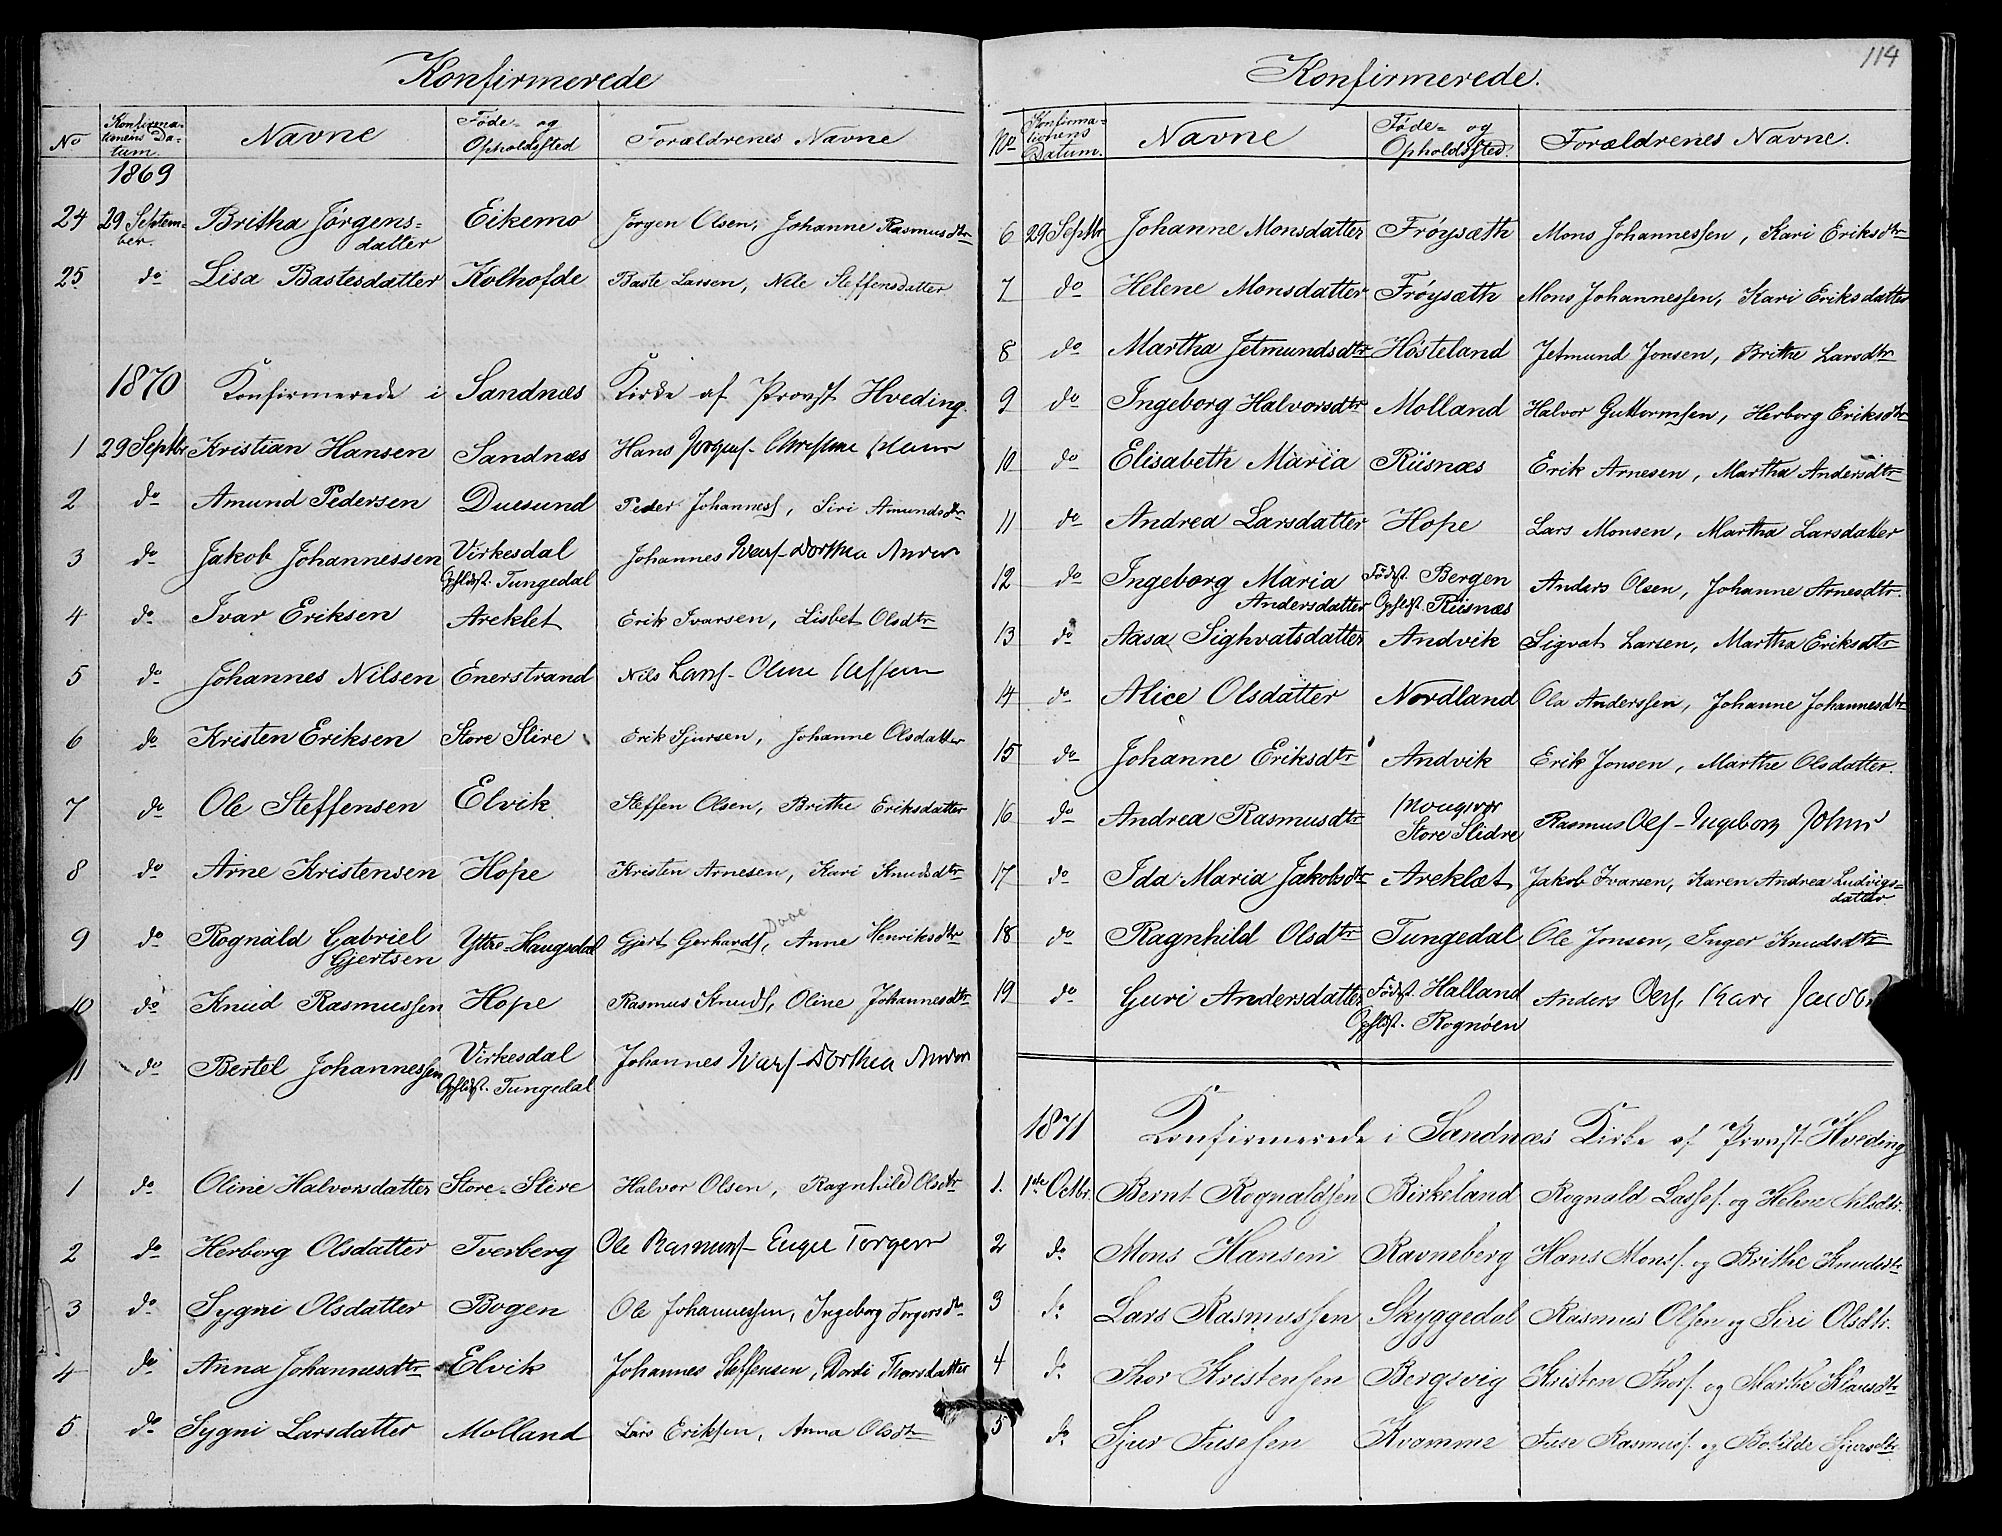 Konfirmerede
No Konfirma-tionens Da-tum Navne Føde- og Opholdssted Forældrenes Navne
1869
24 29 Septem-ber. Britha Jørgens-datter Eikemo Jørgen Olsen, Johanne Rasmusdtr
25 do Lisa Bastesdatter Kolhofde Baste Larsen, Nile Steffensdatter
1870 Konfirmerede i Sandnæs Kirke af Provst Hveding.
1 29 Septbr Kristian Hansen Sandnæs Hans
2 do Amund Pedersen Duesund Peder Johanness, Siri Amundsdtr
3 do Jakob Johannessen Virkesdal Opholdst. Tungedal Johannes Ivars- Dorthea Anders
4 do Ivar Eriksen Areklet Erik Ivarsen, Lisbet Olsdtr
5 do Johannes Nilsen Enerstrand Nils Larss- Oline
6 do Kristen Eriksen Store Slire Erik Sjursen, Johanne Olsdatter
7 do Ole Steffensen Elvik Steffen Olsen, Brithe Eriksdatter
8 do Arne Kristensen Hope Kristen Arnesen, Kari Knudsdtr
9 do Rognald Gabriel Gjertsen Yttre-Haugsdal Gjert Gerhards, Anne Henriksdtr
10 do Knud Rasmussen Hope Rasmus Knuds, Oline Johannesdtr
11 do Bertel Johannessen Virkesdal Opholdst. Tungedal Johannes Ivars- Dorthea Anders
1 do Oline Halvorsdatter Store-Slire Halvor Olsen, Ragnhild Olsdtr
2 do Herborg Olsdatter Tverberg Ole Rasmuss-
3 do Sygni Olsdatter Bogen Ole Johannessen, Ingeborg Torgersdtr
4 do Anna Johannesdtr Elvik Johannes Steffensen, Dordi Thorsdatter
5 do Sygni Larsdatter Molland Lars Eriksen, Anna Olsdtr
114
Konfirmerede.
No Konfirma-tionens Datum. Navne Føde- og Opholdssted. Forældrenes Navne.
6 29 Septbr Johanne Monsdatter Frøysæth Mons Johannessen, Kari Eriksdtr
7 do Helene Monsdatter Frøysæth Mons Johannessen, Kari Eriksdatter
8 do Martha Jetmundsdtr Høsteland Jetmund Jonsen, Brithe Larsdtr
9 do Ingeborg Halvorsdtr Molland Halvor Guttormsen, Herborg Eriksdtr
10 do Elisabeth Maria Riisnæs Erik Arnesen, Martha Andersdtr
11 do Andrea Larsdatter Hope Lars Monsen, Martha Larsdatter
12 do Ingeborg Maria Andersdatter Fødst. Bergen Opholdst. Riisnæs Anders Olsen, Johanne Arnesdtr.
13 do Aasa Sighvatsdatter Andvik Sigvat Larsen, Martha Eriksdtr
14 do Alice Olsdatter Nordland Ola Anderssen, Johanne Johannesdtr
15 do Johanne Eriksdtr Andvik Erik Jonsen, Marthe Olsdatter.
16 do Andrea Rasmusdtr Store Slidre Rasmus Ols- Ingeborg Johns
17 do Ida Maria Jakobsdtr Areklæt Jakob Ivarsen, Karen Andrea Ludvigs-datter
18 do Ragnhild Olsdtr Tungedal Ole Jonsen, Inger Knudsdtr
19 do Guri Andersdatter Fødst. Halland Opholdst. Rognøen Anders Kari
1871 Konfirmerede i Sandnæs Kirke af Provst Hveding
1. 1ste Octbr. Bernt Rognaldsen Birkeland Rognald Lasses. og Helene Nilsdtr.
2 do Mons Hansen Ravneberg Hans Mons. og Brithe Knudsdtr
3 do Lars Rasmussen Skyggedal Rasmus Olsen og Siri Olsdtr.
4 do Thor Kristensen Bergsvig Kristen Thors. og Marthe Klausdtr
5 do Sjur Fusesen Kvamme Fuse Rasmuss. og Botilde Sjursdtr